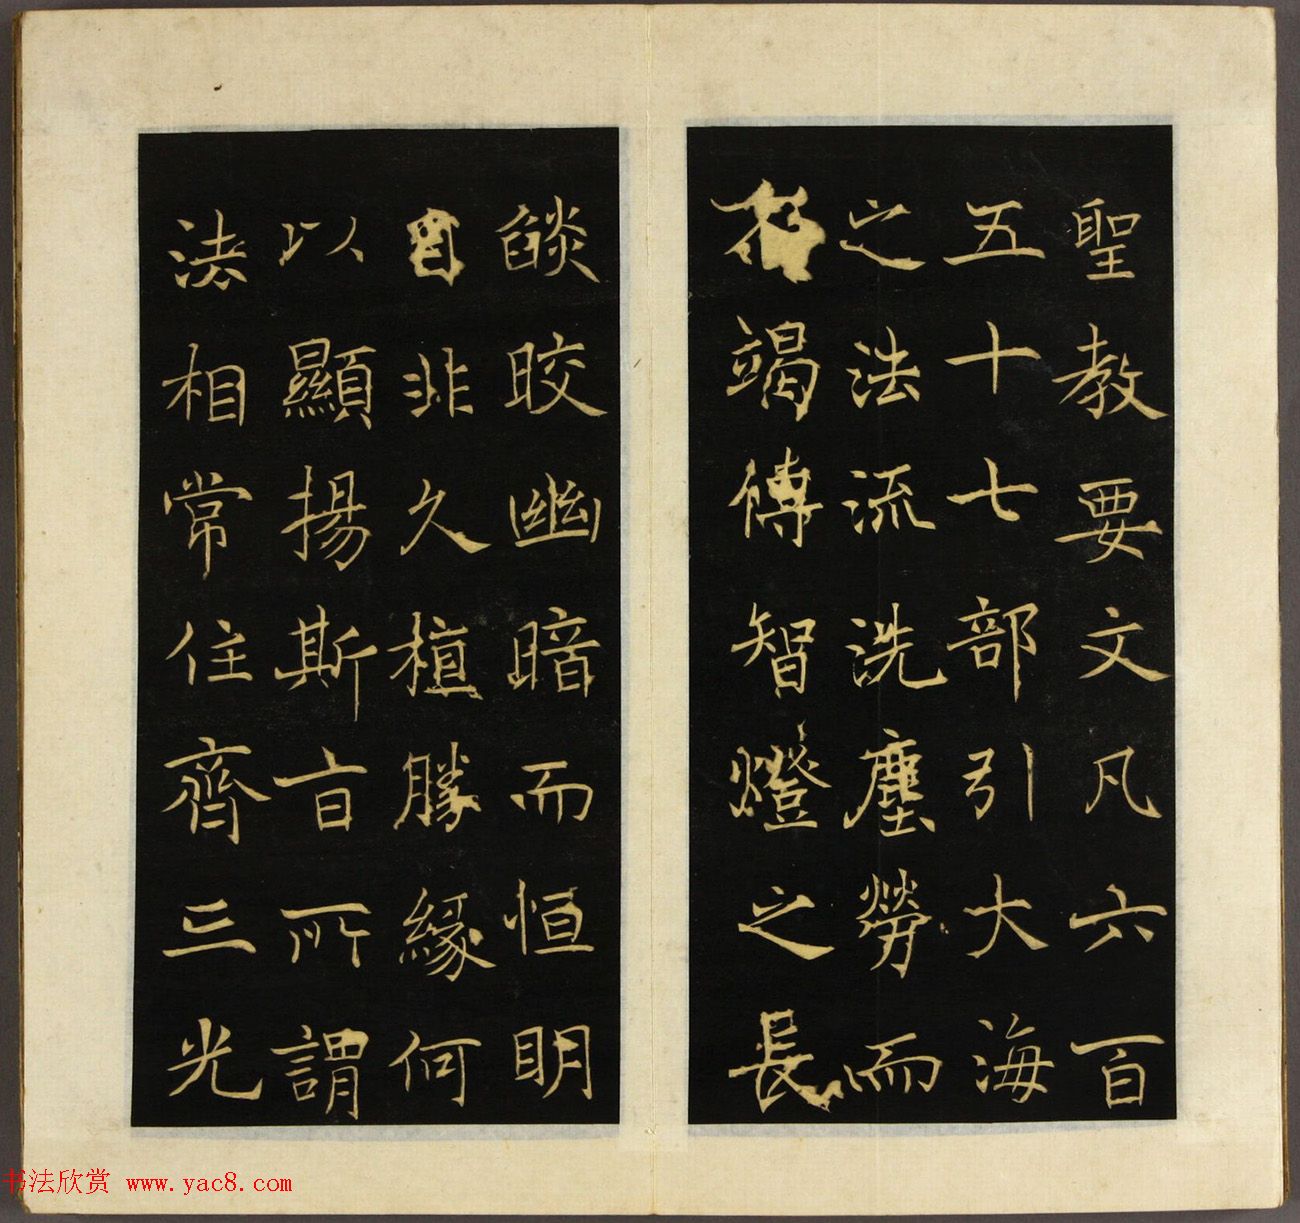 聖教要文凡六百
五十七部引大海
之法流洗塵勞而
不竭傳智燈之長
燄皎幽暗而恒明
自非久植勝緣何
以顯揚斯旨所謂
法相常住齊三光
书法欣赏 www.yac8.com